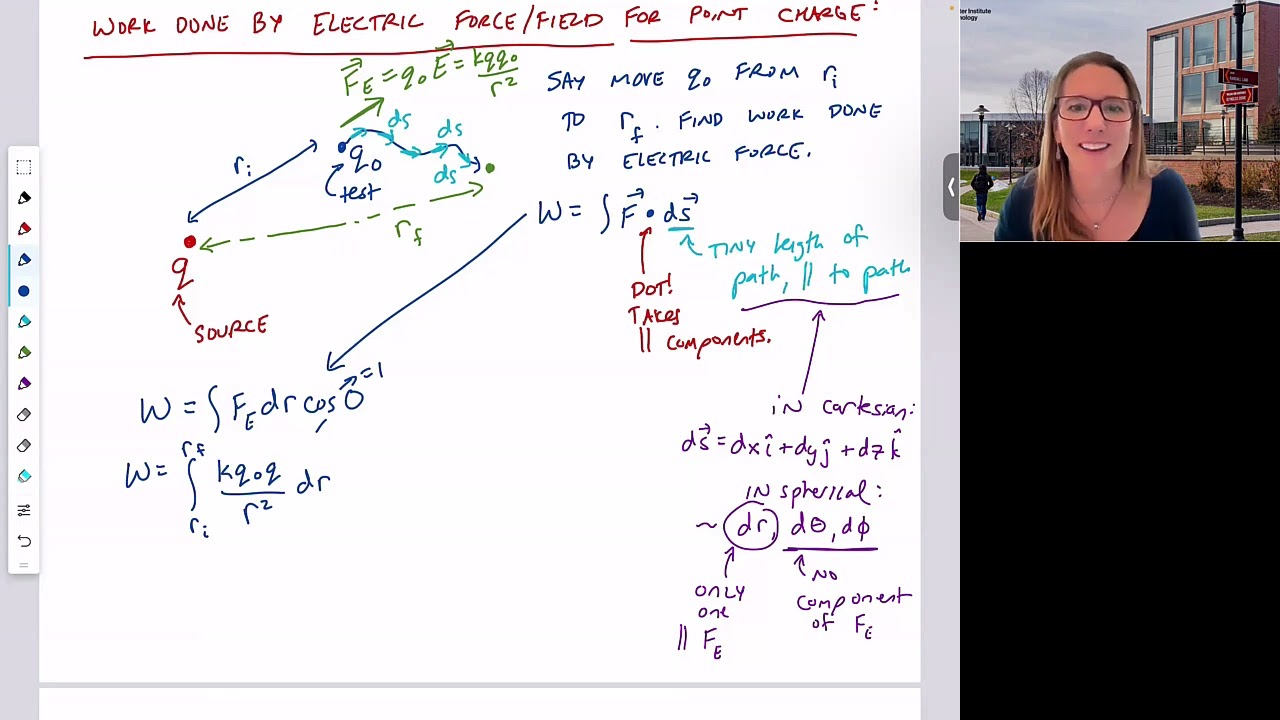 WORK DONE BY ELECTRIC FORCE/FIELD FOR POINT CHARGE:
F⃗_E = q₀ E⃗ = kqq₀/r²
SAY MOVE q₀ FROM rᵢ
TO r_f. FIND WORK DONE
BY ELECTRIC FORCE.
ds
ds
ds
rᵢ
q₀
test
r_f
q
SOURCE
W = ∫ F⃗ • ds⃗
TINY length of
path, || to path
DOT!
TAKES
|| components.
W = ∫ F_E dr cos 0 → = 1
W = ∫_{rᵢ}^{r_f} kq₀q/r² dr
in cartesian:
ds⃗ = dx î + dy ĵ + dz k̂
IN spherical:
~ dr, dθ, dϕ
only
one
|| F_E
NO
component
of F_E
ter Institute
nology